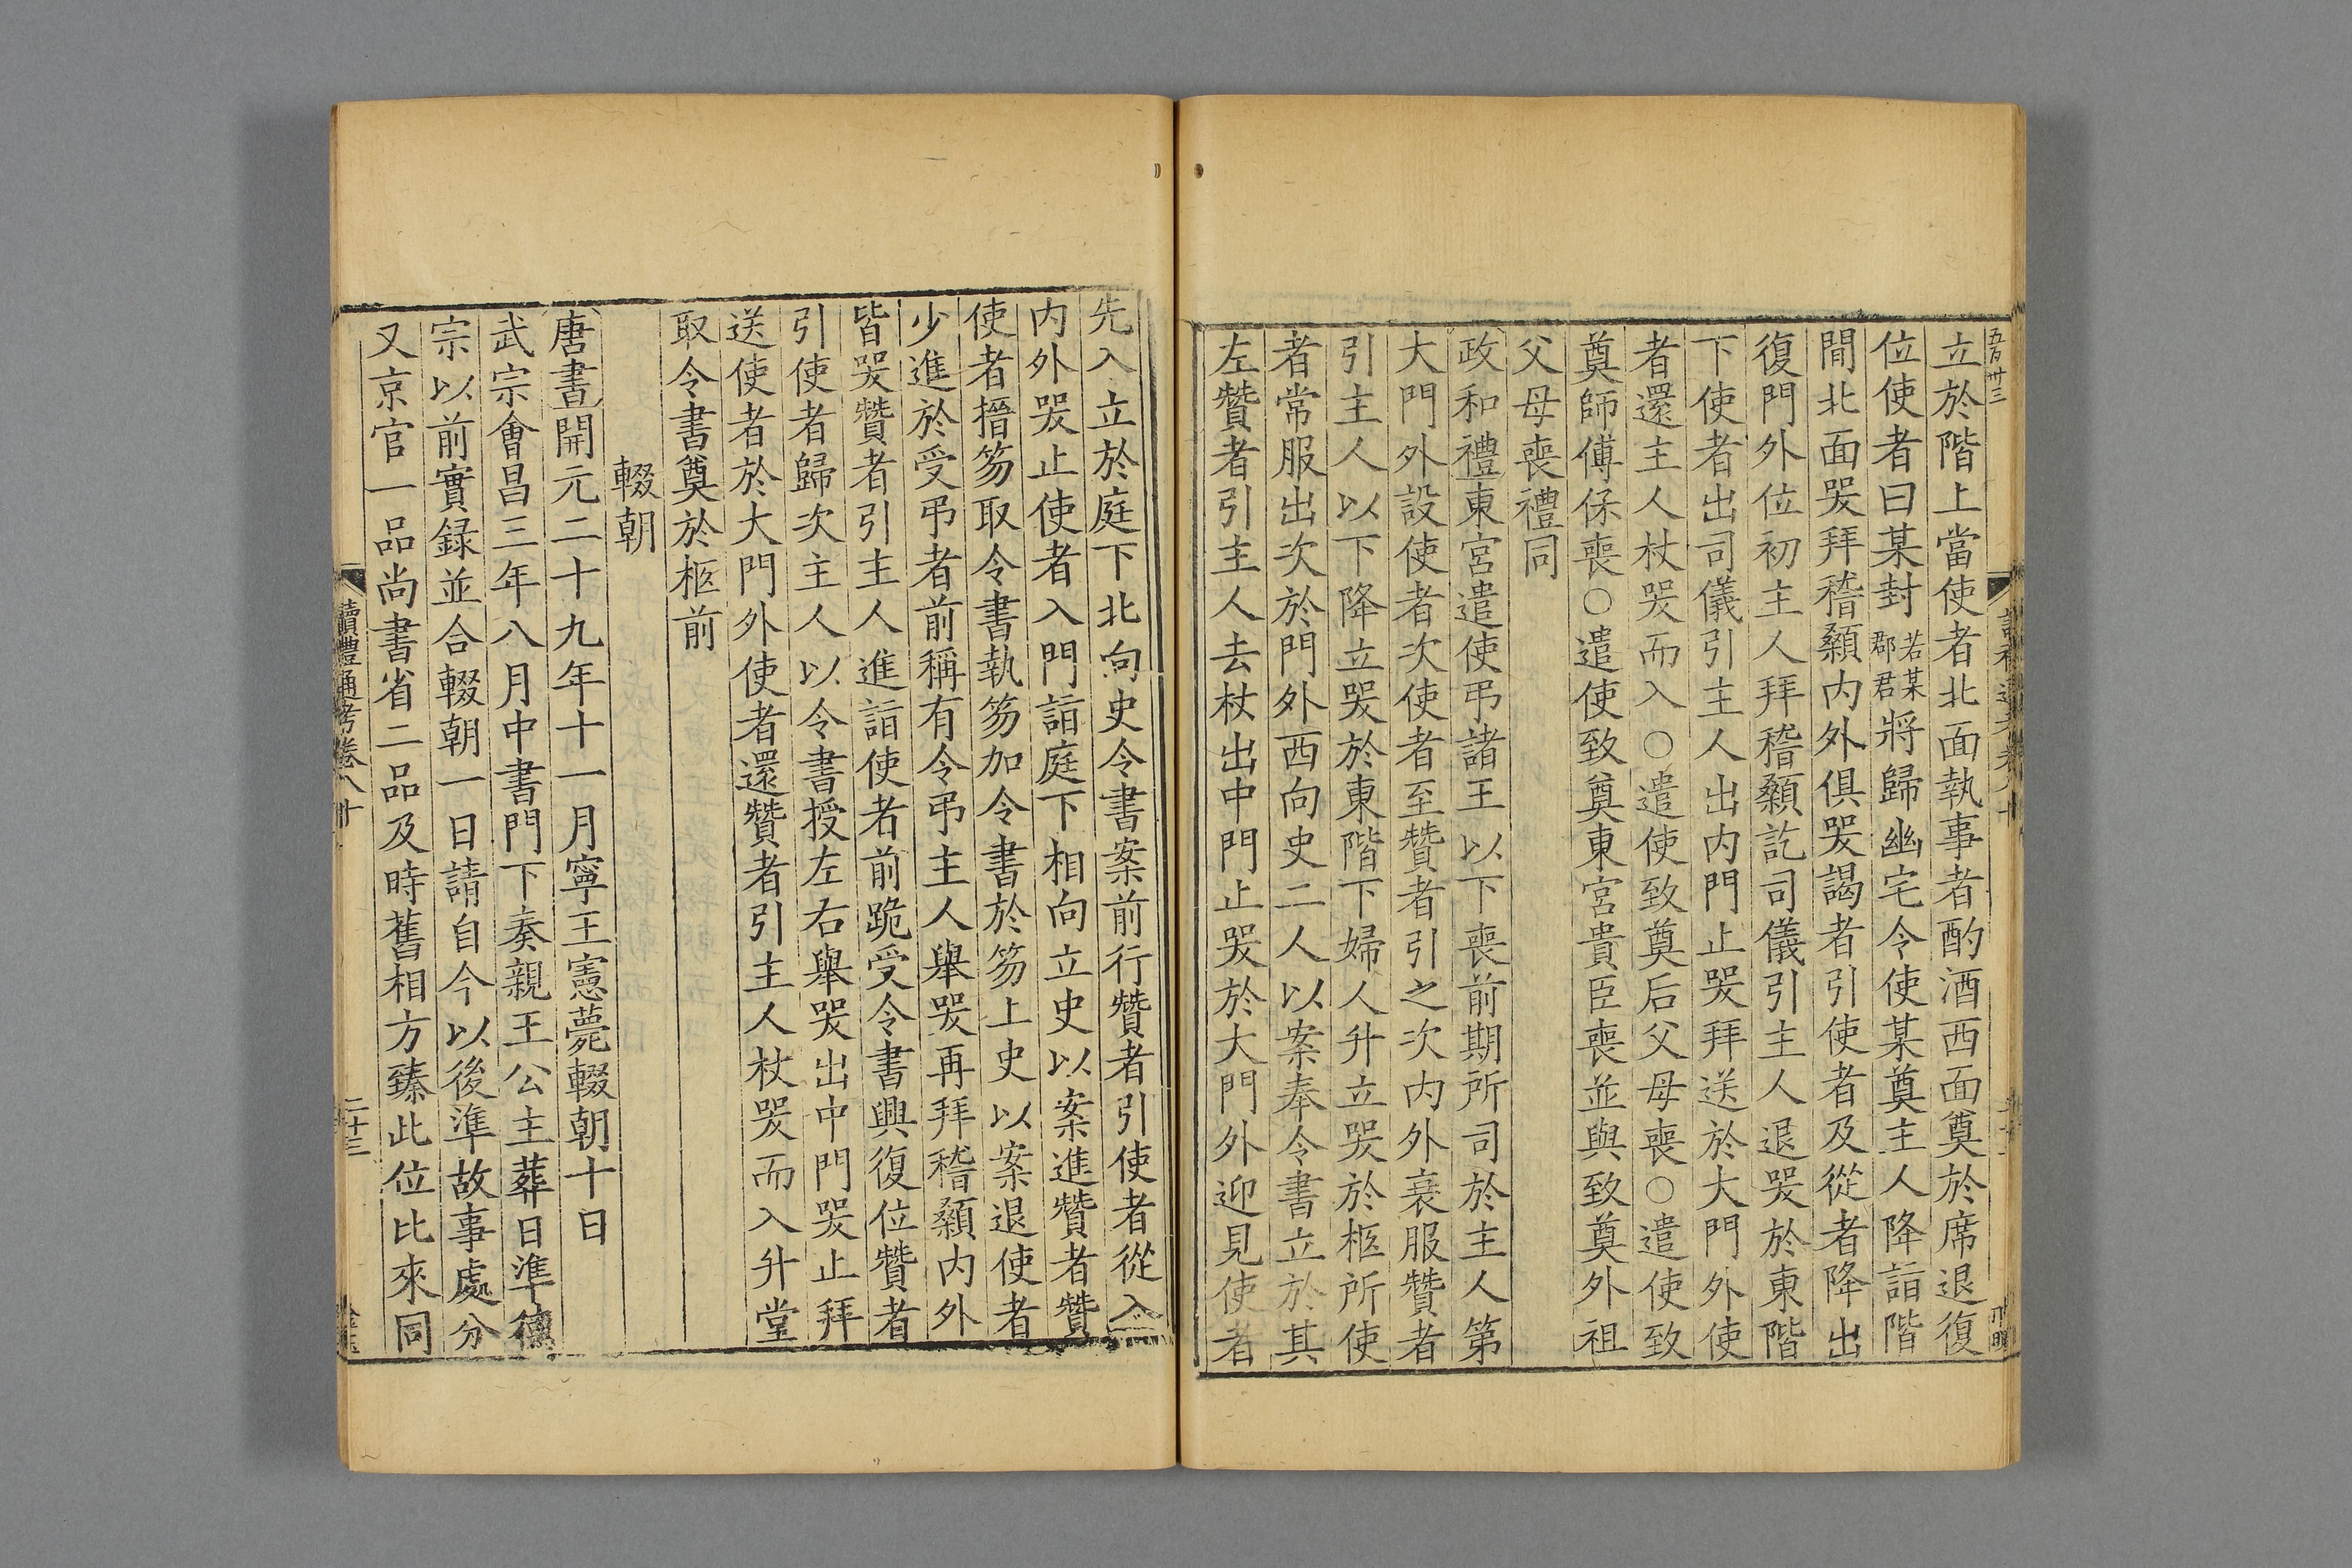 五百卅三
立於階上當使者北面執事者酌酒西面奠於席退復
位使者曰某封若某郡君將歸幽宅令使某奠主人降詣階
間北面哭拜稽顙内外俱哭謁者引使者及從者降出
復門外位初主人拜稽顙訖司儀引主人退哭於東階
下使者出司儀引主人出内門止哭拜送於大門外使
者還主人杖哭而入○遣使致奠后父母喪○遣使致
奠師傅保喪○遣使致奠東宮貴臣喪並與致奠外祖
父母喪禮同
政和禮東宮遣使弔諸王以下喪前期所司於主人第
大門外設使者次使者至贊者引之次内外衰服贊者
引主人以下降立哭於東階下婦人升立哭於柩所使
者常服出次於門外西向史二人以案奉令書立於其
左贊者引主人去杖出中門止哭於大門外迎見使者
先入立於庭下北向史令書案前行贊者引使者從入
内外哭止使者入門詣庭下相向立史以案進贊者贊
使者搢笏取令書執笏加令書於笏上史以案退使者
少進於受弔者前稱有令弔主人舉哭再拜稽顙内外
皆哭贊者引主人進詣使者前跪受令書興復位贊者
引使者歸次主人以令書授左右舉哭出中門哭止拜
送使者於大門外使者還贊者引主人杖哭而入升堂
取令書奠於柩前
輟朝
唐書開元二十九年十一月寧王憲薨輟朝十日
武宗會昌三年八月中書門下奏親王公主葬日準德
宗以前實録並合輟朝一日請自今以後準故事處分
又京官一品尚書省二品及時舊相方臻此位比來同
讀禮通考卷八十
二十三